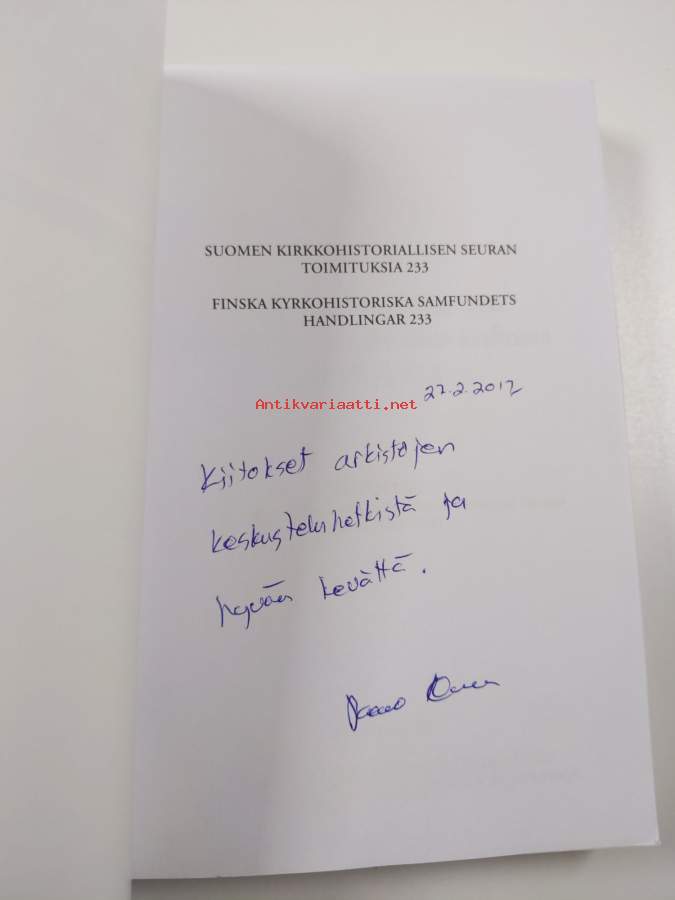 SUOMEN KIRKKOHISTORIALLISEN SEURAN
TOIMITUKSIA 233
FINSKA KYRKOHISTORISKA SAMFUNDETS
HANDLINGAR 233
27.2.2012
Antikvariaatti.net
Kiitokset arkistojen
keskusteluhetkistä ja
hyvää kevättä.